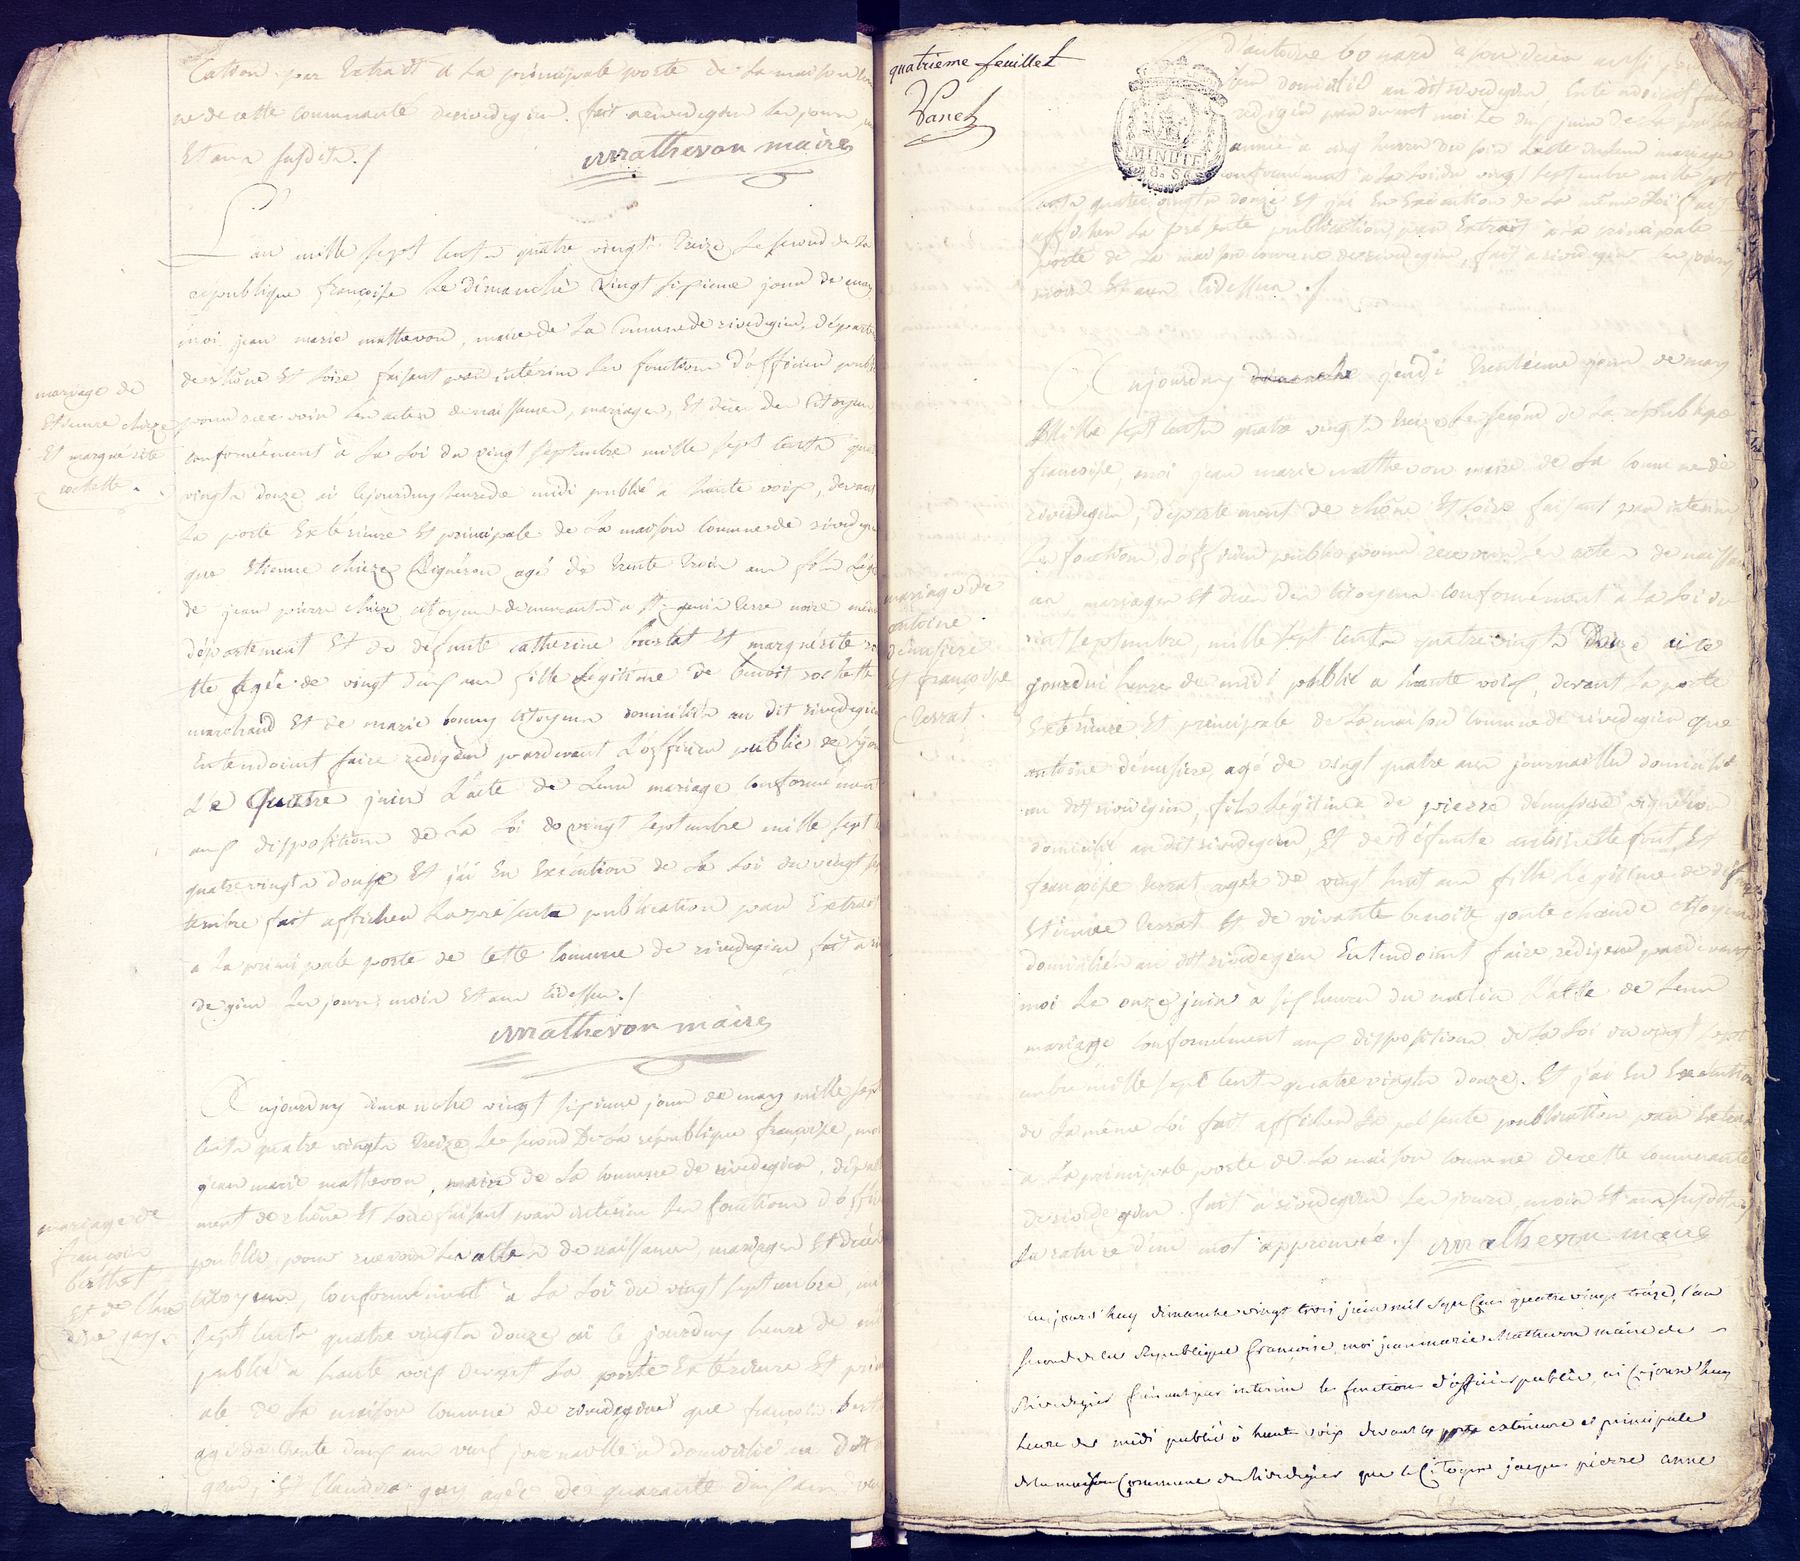 cation par Extrait a La principale porte de La maison
ne de cette communauté derivedegier. fait arivedegier Les jour
Et an susdits ./
mathevon maire
L'an mille sept Cents quatre vingts treize Le second de La
république françoise Le dimanche vingt sixieme jour de may
moi jean marie mathevon, maire de La Commune de rivedegier, départe
de rhône Et Loire faisant par intérim Les fonctions d'officier publi
pour recevoir Les actes de naissances, mariages, Et décès des Citoyens
conformément à La Loi du vingt septembre mille sept Cents quat
vingts douze ai cejourduy heure de midi publié a haute voix, devant
La porte Extérieure Et principale de La maison Commune de rivedegier
que Etienne chieze agé de trente trois ans fils Légi
de jean pierre chieze citoyens demeurants a St genis terre noire même
département Et de defunte catherine Et marguerite ro
tte agée de vingt deux ans fille Légitime de benoit rochette
marchand Et de marie bonny citoyens domiciliés au dit rivedegier
Entendoient faire rediger pardevant L'officier public de
Le quatre juin L'acte de Leur mariage conformément
aux dispositions de La Loi du vingt septembre mille sept
quatre vingts douze Et j'ai En Exécution de La Loi du vingt sep
tembre fait afficher La présente publication par Extrait
a La principale porte de cette commune de rivedegier fait a ri
degier Les jours mois Et an cidessus ./
mathevon maire
mariage de
Etienne chieze
Et marguerite
rochette.
Aujourduy dimanche vingt sixieme jour de may mille sept
Cents quatre vingts treize Le second De La république françoise, moi
jean marie mathevon, maire de La commune de rivedegier, départe
ment de rhône Et Loire faisant par intérim Les fonctions d'offi
public pour recevoir Les actes de naissances, mariages Et décès
citoyens, conformément à La Loi du vingt septembre, mi
sept Cents quatre vingts douze ai ce jourduy heure de mi
publié a haute voix devant La porte Extérieure Et prin
ale de La maison commune de rivedegier que françois bert
agé de trente deux ans veuf journallier domicilié au dit
gier, Et Claudine agée de quarante
mariage de
françois
berthet
Et de
quatrieme feuillet
MINUTE
8. S.
d'antoine
domicilié au dit rivedegier,
rediger par devant moi Le dix juin de La présente
année a cinq heures du soir L'acte de Leur mariage
conformément à La Loi du vingt septembre mille sept
cents quatre vingts douze Et j'ai En Exécution de La même Loi fait
afficher La présente publication par Extrait à La principale
porte de La maison commune derivedegier, fait a rivedegier Les jour,
mois Et an cidessus ./
Aujourduy dimanche jeudi trentieme jour de may
Mille sept Cents quatre vingts treize Le second de La république
françoise, moi jean marie mathevon maire de La commune de
rivedegier, département de rhône Et Loire faisant par interim
Les fonctions d'officier public pour recevoir Les actes de naissan
ces mariages Et décès des citoyens conformément a La Loi du
vingt septembre, mille sept Cents quatre vingts douze ai ce
jourdui heure de midi publié a haute voix, devant La porte
Extérieure Et principale de La maison commune de rivedegier que
antoine agé de vingt quatre ans journallier domicilié
au dit rivedegier, fils Légitime de pierre
domicilié au dit rivedegier, Et de défunte antoinette font, Et
françoise terrat agée de vingt huit ans fille Légitime de défunt
Etienne terrat Et de vivante benoite citoyens
domiciliés au dit rivedegier Entendoient faire rediger pardevant
moi Le onze juin à six heures du matin L'acte de Leur
mariage conformément aux dispositions de La Loi du vingt sept
embre mille sept Cents quatre vingts douze. Et j'ai En Exécution
de La même Loi fait afficher La présente publication par Extrait
a La principale porte de La maison commune de cette communauté
de rivedegier. fait à rivedegier Les jours, mois Et an susdits ;
La rature d'un mot approuvée ./ mathevon maire
mariage de
antoine
Et françoise
terrat.
aujourd'huy dimanche vingt trois juin mil sept Cens quatre vingt treize, l'an
second de la Republique françoise, moi jean marie Mathevon maire de
Rivedegier faisant par interim les fonctions d'officier public, ai Cejourd'huy
heure de midi publié à haute voix devant la porte exterieure et principale
de la maison Commune de Rivedegier que le Citoyen jacques pierre anne